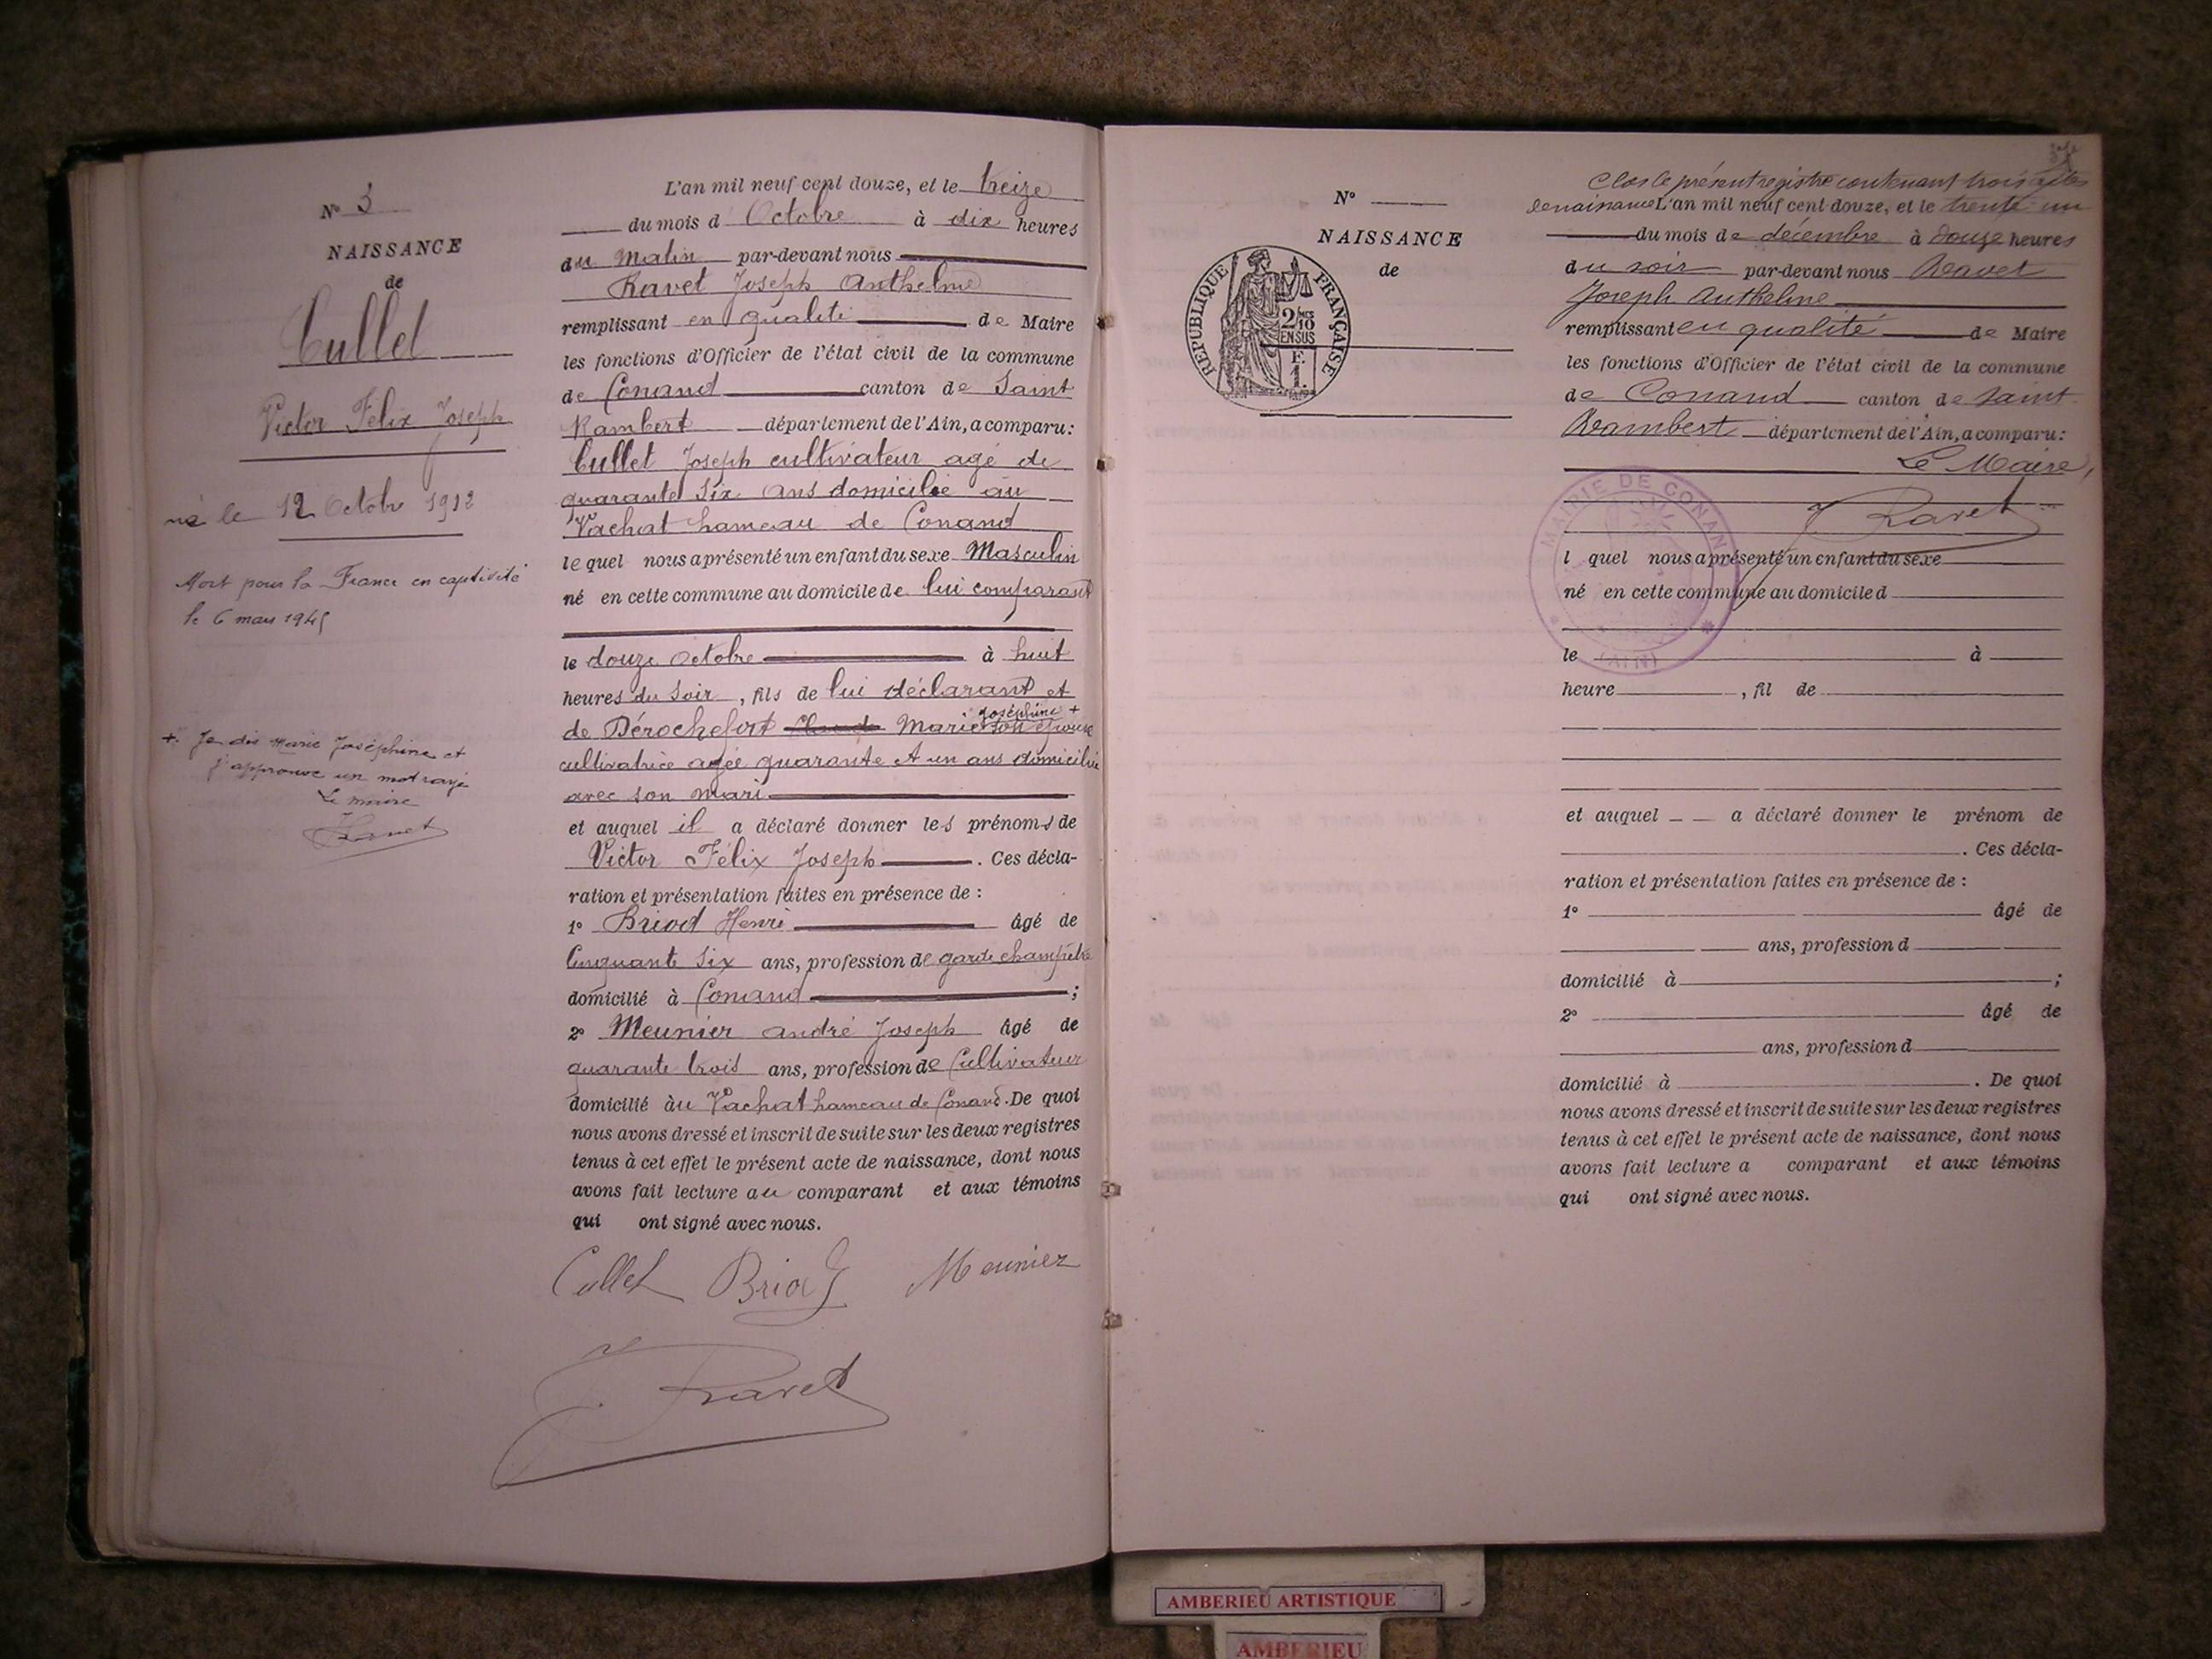 N° 3
NAISSANCE
de
Cullet
Victor Félix Joseph
né le 12 Octobre 1912
Mort pour la France en captivité
le 6 mars 1945
+ Je dis Marie Joséphine et
j'approuve un mot rayé
Le maire
Ravet
L'an mil neuf cent douze, et le treize
du mois d'Octobre à dix heures
du Matin par-devant nous
Ravet Joseph Anthelme
remplissant en qualité de Maire
les fonctions d'Officier de l'état civil de la commune
de Conand canton de Saint
Rambert département de l'Ain, a comparu:
Cullet Joseph cultivateur agé de
quarante six ans domicilié au
Vachat hameau de Conand
lequel nous a présenté un enfant du sexe Masculin
né en cette commune au domicile de lui comparant
le douze Octobre à huit
heures du Soir, fils de lui déclarant et
Joséphine +
de Dérochefort Marie son épouse
cultivatrice agée quarante et un ans domiciliée
avec son mari
et auquel il a déclaré donner les prénoms de
Victor Félix Joseph. Ces décla-
ration et présentation faites en présence de :
1° Briod Henri âgé de
Cinquante Six ans, profession de garde champêtre
domicilié à Conand ;
2° Meunier andré Joseph âgé de
quarante trois ans, profession de Cultivateur
domicilié au Vachat hameau de Conand. De quoi
nous avons dressé et inscrit de suite sur les deux registres
tenus à cet effet le présent acte de naissance, dont nous
avons fait lecture au comparant et aux témoins
qui ont signé avec nous.
Cullet Briod Meunier
J. Ravet
N°
NAISSANCE
de
RÉPUBLIQUE FRANÇAISE
2/10
EN SUS
F.
1.
Clos le présent registre contenant trois actes
de naissance L'an mil neuf cent douze, et le trente un
du mois de décembre à douze heures
du soir par-devant nous Ravet
Joseph Anthelme
remplissant en qualité de Maire
les fonctions d'Officier de l'état civil de la commune
de Conand canton de Saint
Rambert département de l'Ain, a comparu:
Le Maire,
J Ravet
MAIRIE DE CONAND
(AIN)
l quel nous a présenté un enfant du sexe
né en cette commune au domicile d
le à
heure , fil de
et auquel a déclaré donner le prénom de
. Ces décla-
ration et présentation faites en présence de :
1° âgé de
ans, profession d
domicilié à ;
2° âgé de
ans, profession d
domicilié à . De quoi
nous avons dressé et inscrit de suite sur les deux registres
tenus à cet effet le présent acte de naissance, dont nous
avons fait lecture a comparant et aux témoins
qui ont signé avec nous.
AMBERIEU ARTISTIQUE
AMBERIEU